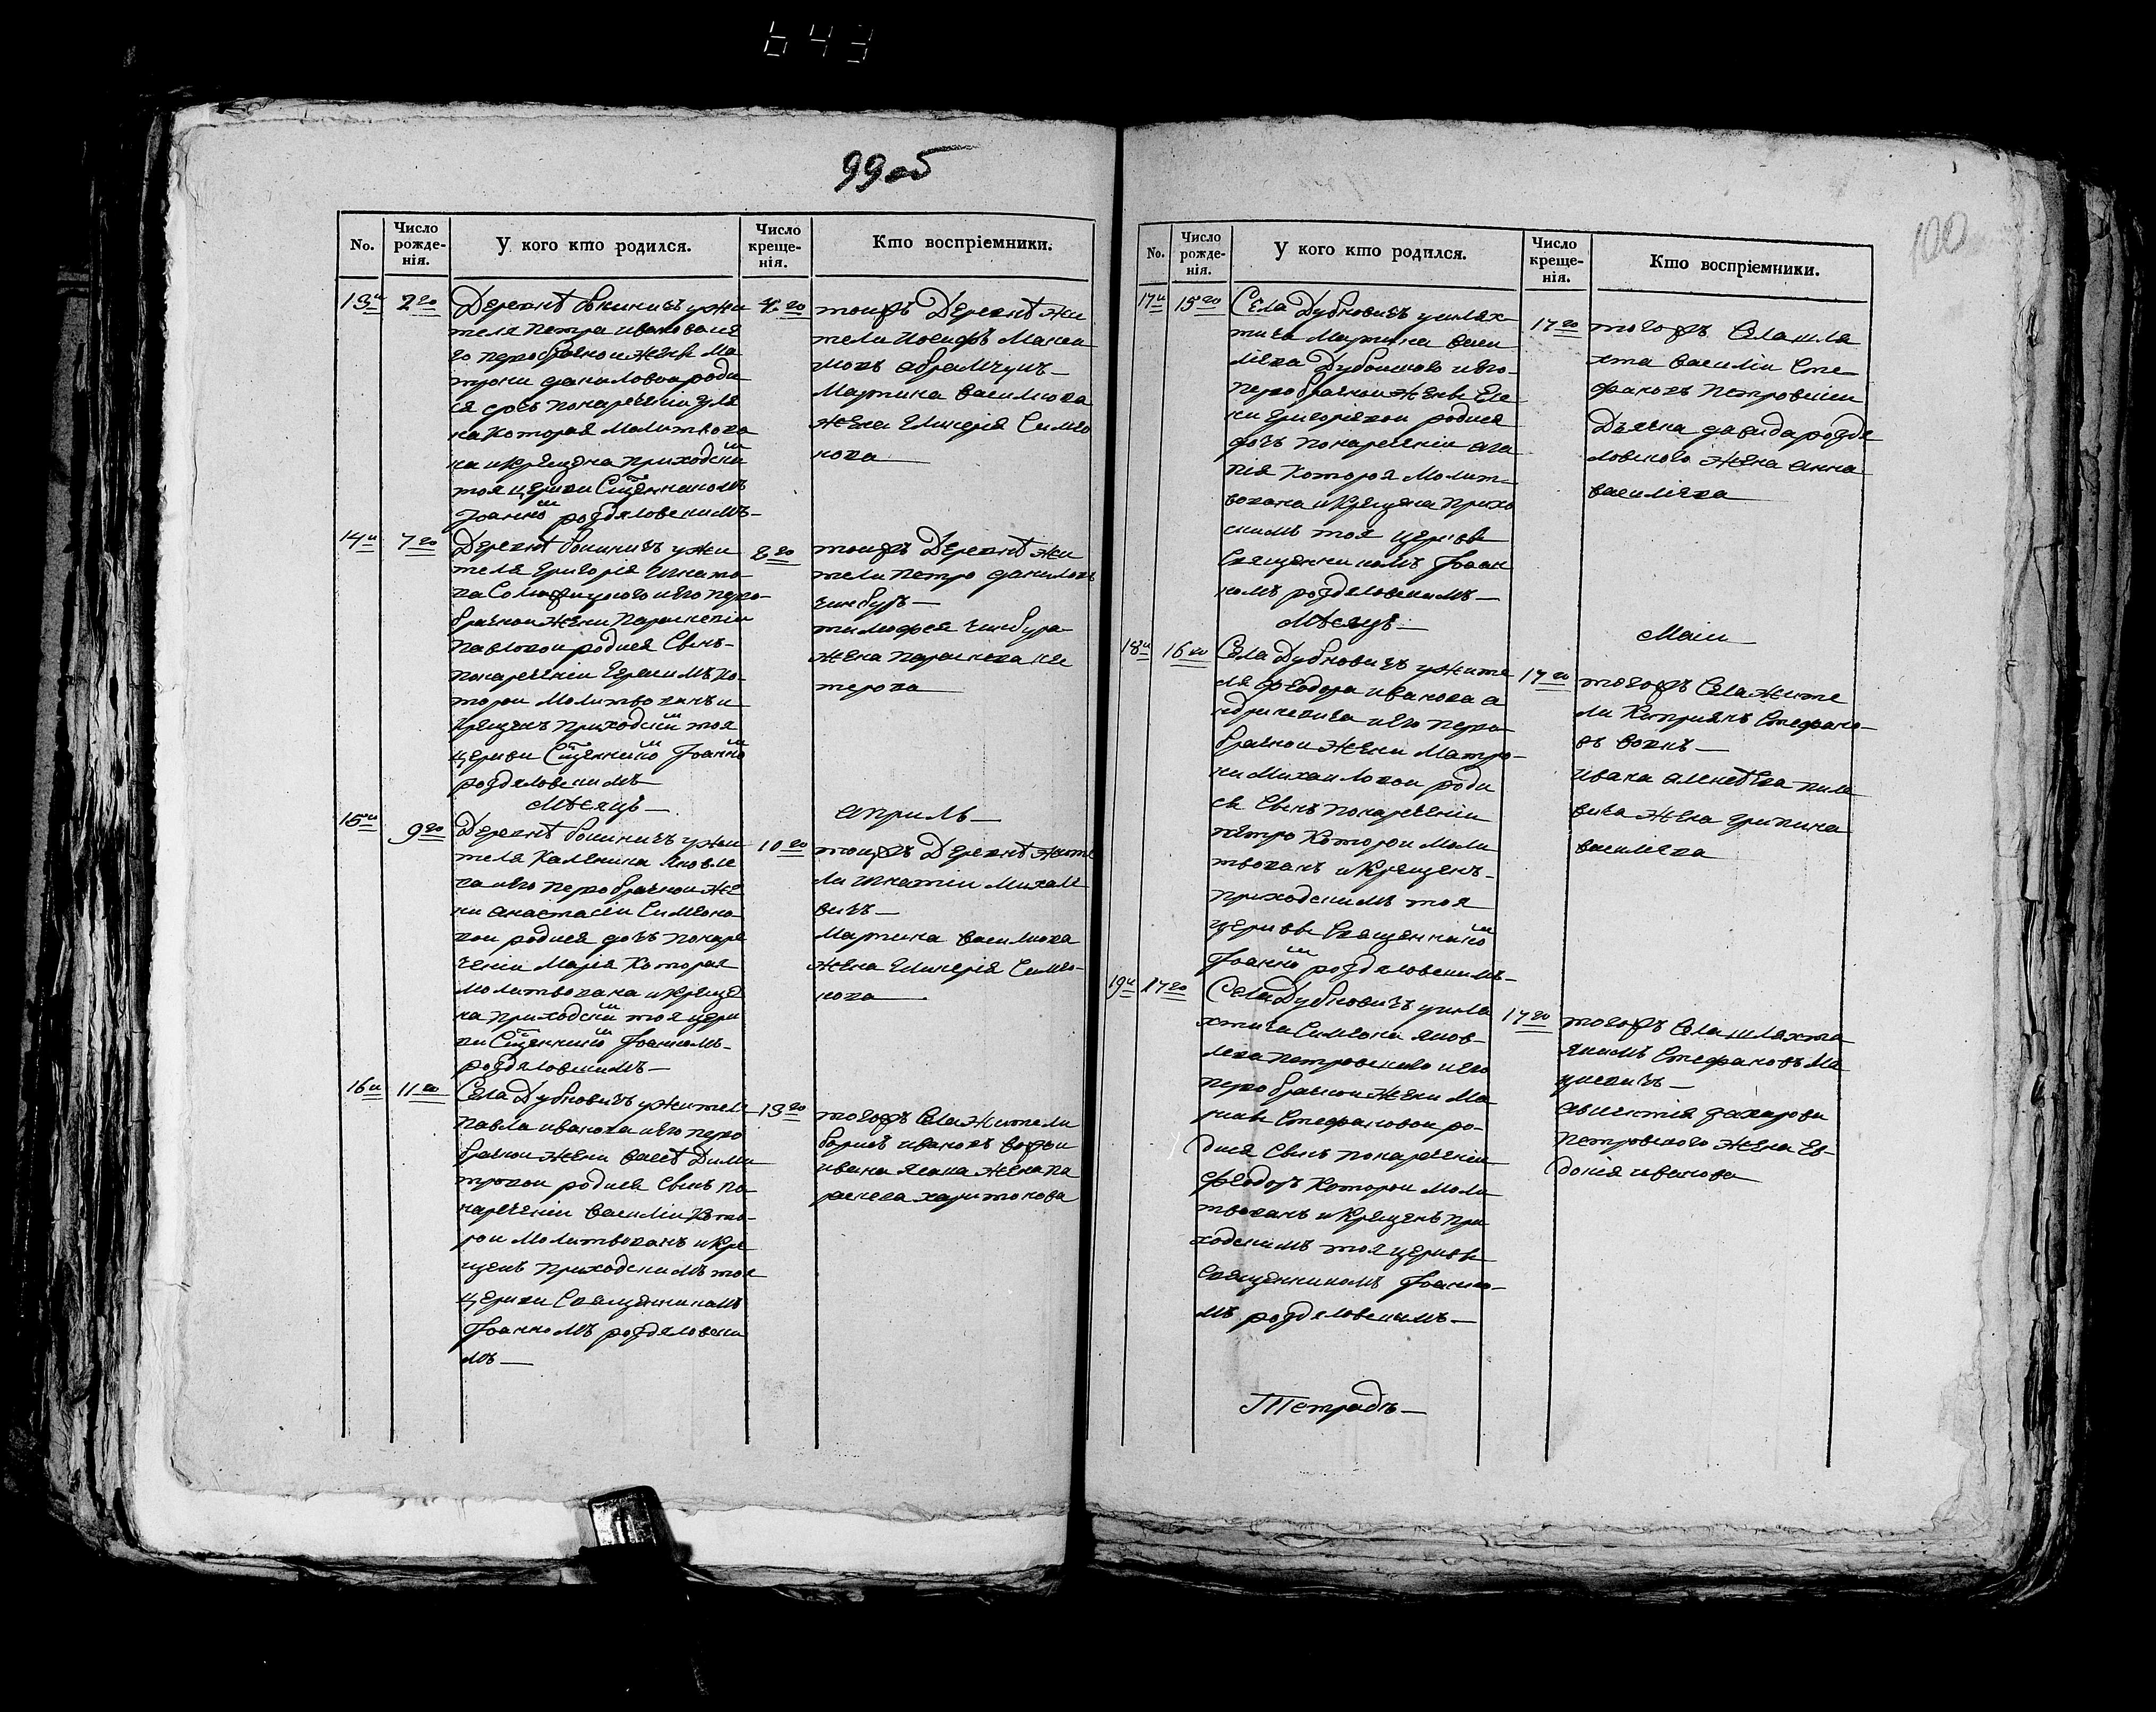 643
99об
No.
Число рожде-нія.
У кого кто родился.
Число креще-нія.
Кто воспріемники.
13й
2го
4го
Деревнѣ у жи
теля Петра Иванова и е
го первобрачной жены Ма
трони Даниловой роди
ся дочь по наречении Уля
на которая молитвова
на и крещена приходским
тоя церкви Сщенником
Іоанном роздяловскимъ
тоижъ Деревнѣ жи
тели Иосифъ Макси
мовъ Абрамчукъ
Мартина Василиова
жена Гликерія Симео
нова
14й
7го
8го
Деревнѣ у жи
теля Григорія Игнато
ва и его перво
брачной жени Параскевіи
Павловой родися Сынъ
по наречении Герасимъ ко
торой молитвованъ и
крещенъ приходским тоя
церкви Сщенником Іоанном
роздяловскимъ
тоижъ Деревнѣ жи
тели Петро Даниловъ
Тимофея
жена Параскева не
терова
Мѣсяцъ
Априль
15й
9го
10го
Деревнѣ у жи
теля Каленика Яковле
ва и его первобрачной же
ни Анастасіи Симеоно
вой родися дочь по наре
ченіи Марія которая
молитвована и креще
на приходским тоя церк
ви Сщенником Іоанномъ
роздяловскимъ
тоижъ Деревнѣ жите
ли Игнатіи Михале
вичъ
Мартина Василиова
жена Гликерія Симео
нова
16й
11го
13го
Села Дубновичъ у жителя
Павла Иванова и его перво
брачной жени Васеѣ Дими
тровой родися Сынъ по
наречении Василіи кото
рой молитвованъ и кре
щенъ приходскимъ тоя
церкви Священникомъ
Іоанномъ роздяловски
мъ
тогожъ Села жители
Борисъ Ивановъ
Ивана жена Па
раскева Харитонова
100
No.
Число рожде-нія.
У кого кто родился.
Число креще-нія.
Кто воспріемники.
17й
15го
17го
Села Дубновичъ у шлях
тича Мартина Васи
лѣва и его
первобрачной жены Еле
ни Григориевой родися
дочь по наречении Ага
пія которая молит
вована и крещена прихо
скимъ тоя церкви
Священникомъ Іоан
номъ роздяловскимъ
тогожъ Села шля
хта Василіи Сте
фановъ Петровскіи
Дьячка Давида роздя
ловского жена Анна
Василѣва
Мѣсяцъ
Маіи
18й
16го
17го
Села Дубновичъ у жите
ля Феодора Иванова А
ндриевича и его перво
брачной жени Матро
ни Михаиловой роди
ся Сынъ по наречении
Петро которой моли
твованъ и крещенъ
приходскимъ тоя
церкви Священником
Іоанном роздяловскимъ
тогожъ Села жите
ли Киприянъ Стефано
въ
Ивана
жена Грипина
Василѣва
19й
17го
17го
Села Дубновичъ у шля
хтича Симеона Яков
лева Петровского и его
первобрачной жени Ма
рии Стефановой ро
дися Сынъ по наречении
Феодоръ которой моли
твованъ и крещенъ при
ходскимъ тоя церкви
Священникомъ Іоанно
мъ роздяловскимъ
тогожъ Села шляхта
Якимъ Стефановъ Ма
цкевичъ
Захарови
Петровского жена Ев
докія Иванова
Тетрадь